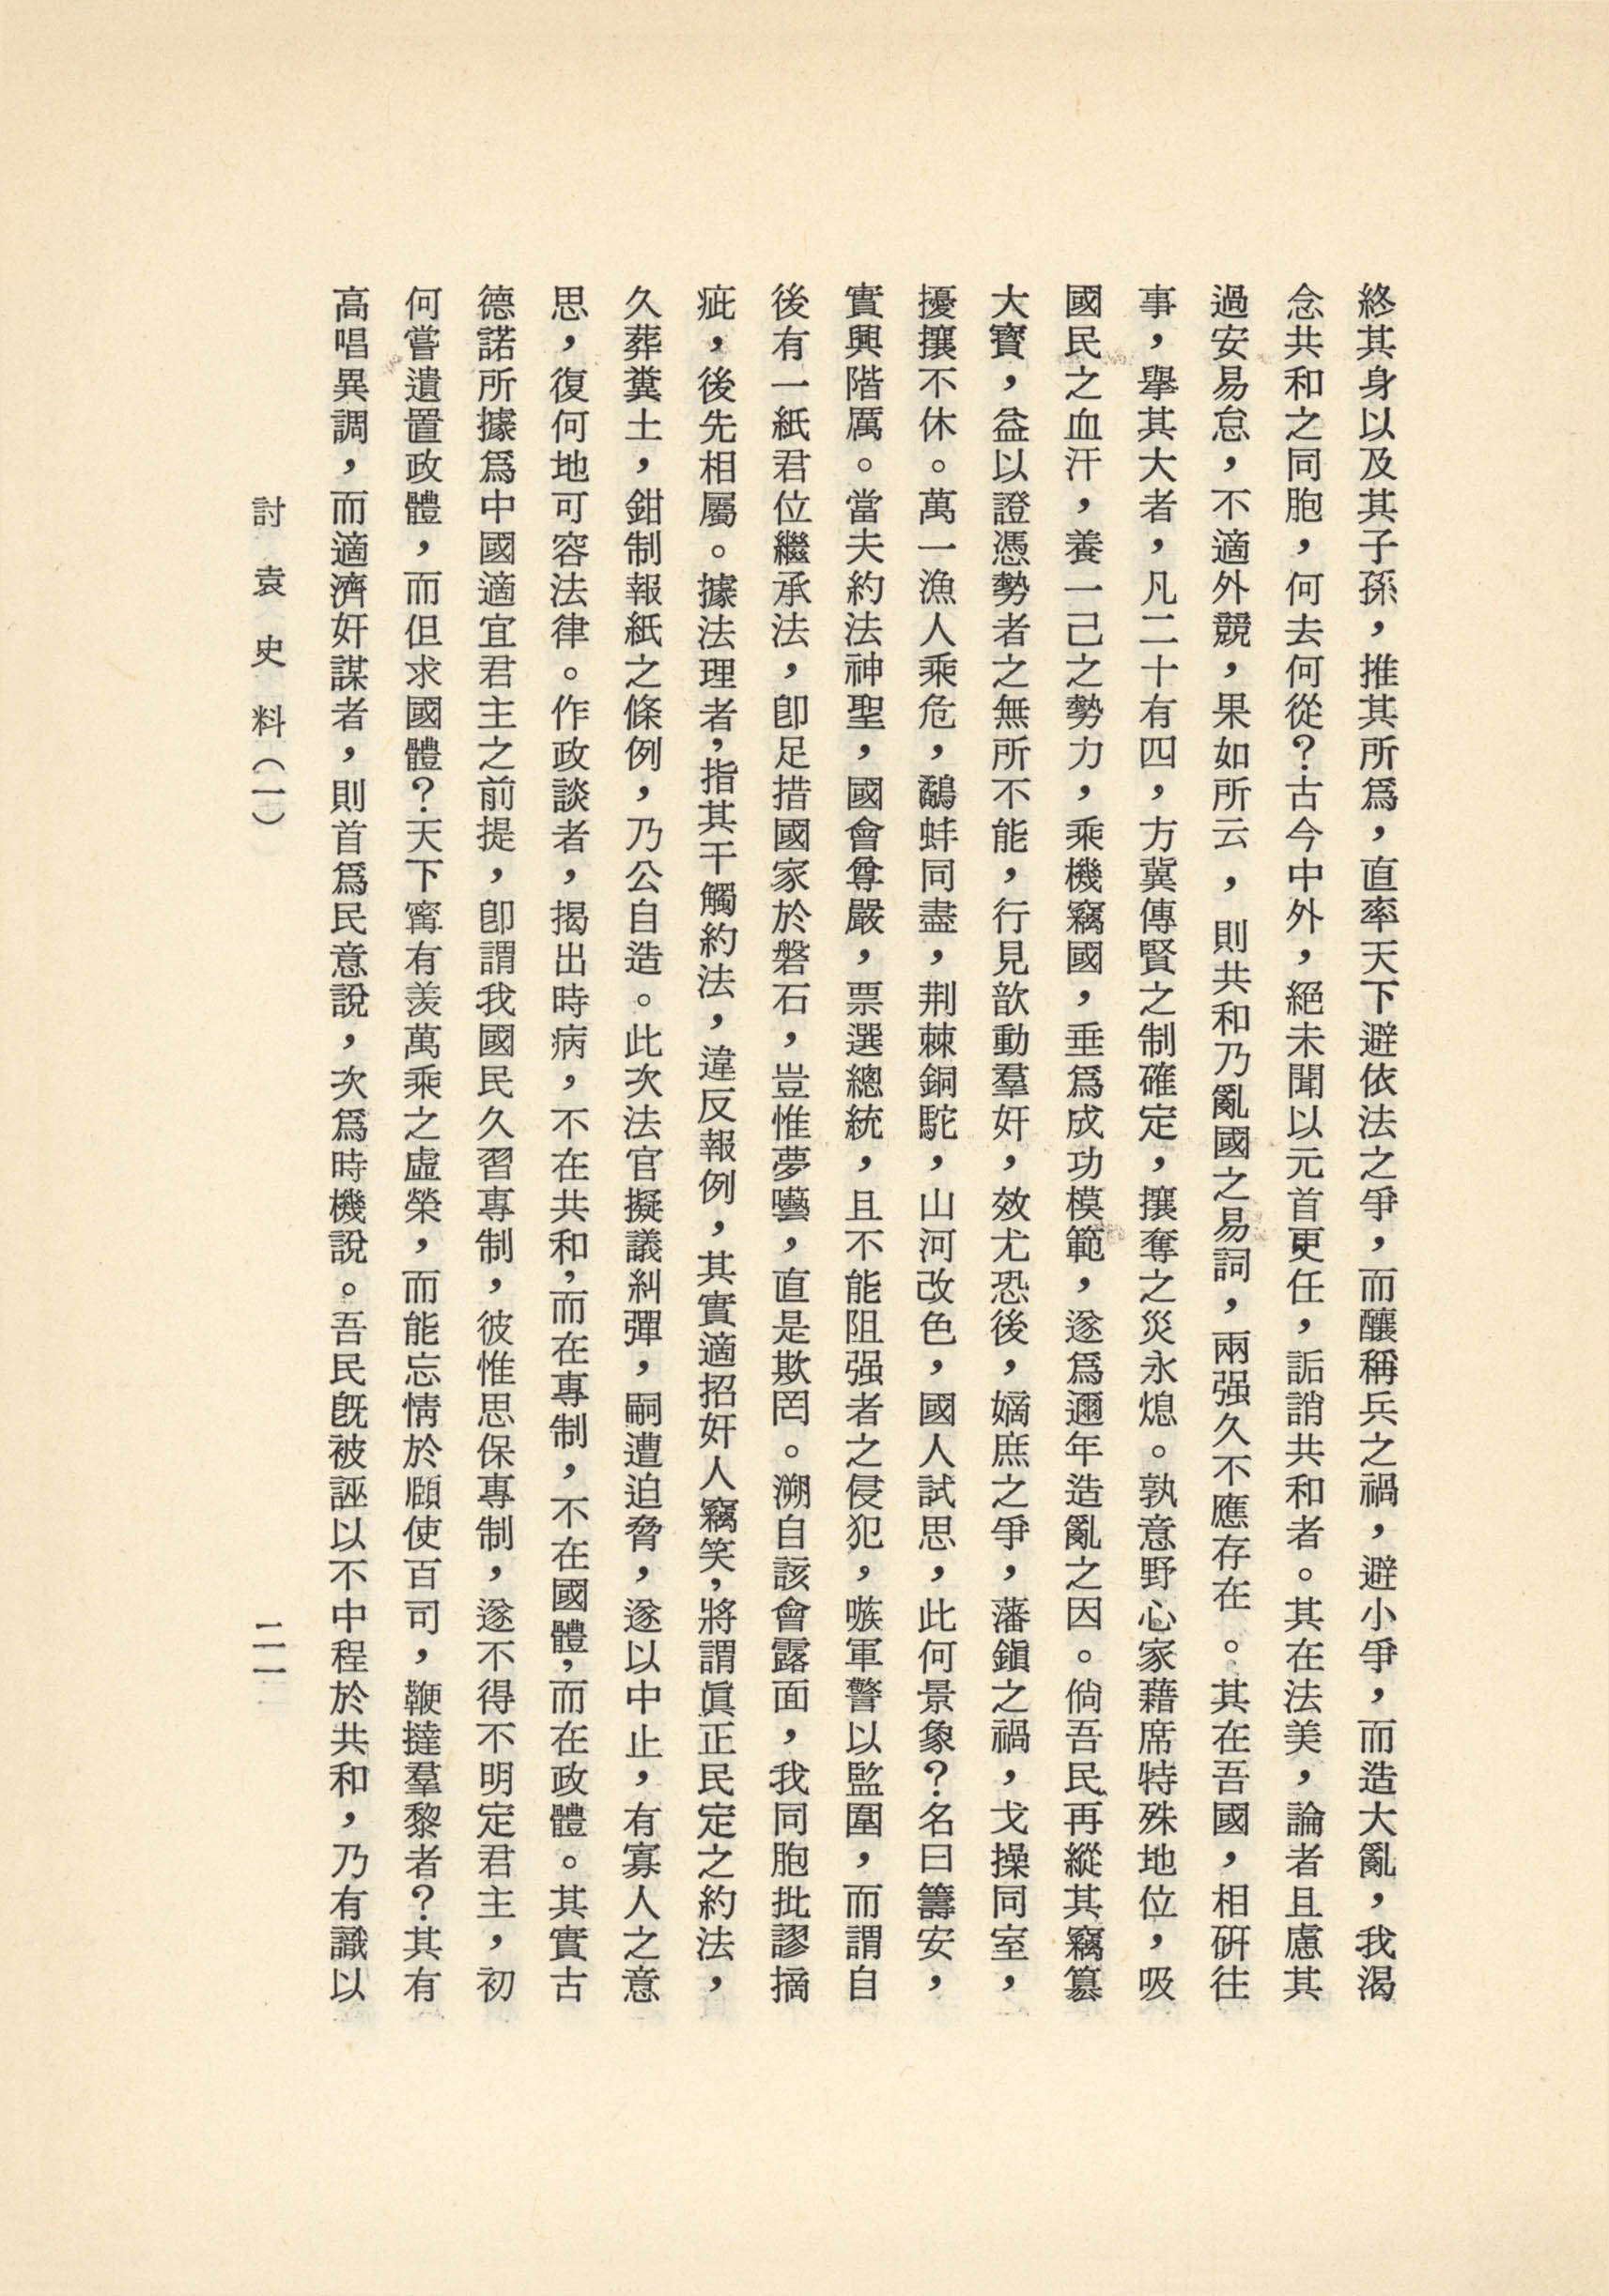 終其身以及其子孫，推其所爲，直率天下避依法之爭，而釀稱兵之禍，避小爭，而造大亂，我渴
念共和之同胞，何去何從？古今中外，絕未聞以元首更任，詬誚共和者。其在法美，論者且慮其
過安易怠，不適外競，果如所云，則共和乃亂國之易詞，兩强久不應存在。其在吾國，相硏往
事，舉其大者，凡二十有四，方冀傳賢之制確定，攘奪之災永熄。孰意野心家藉席特殊地位，吸
國民之血汗，養一己之勢力，乘機竊國，垂爲成功模範，遂爲邇年造亂之因。倘吾民再縱其竊簒
大寶，益以證憑勢者之無所不能，行見歆動羣奸，效尤恐後，嫡庶之爭，藩鎭之禍，戈操同室，
擾攘不休。萬一漁人乘危，鷸蚌同盡，荆棘銅駝，山河改色，國人試思，此何景象？名曰籌安，
實興階厲。當夫約法神聖，國會尊嚴，票選總統，且不能阻强者之侵犯，嗾軍警以監圍，而謂自
後有一紙君位繼承法，卽足措國家於磐石，豈惟夢囈，直是欺罔。溯自該會露面，我同胞批謬摘
疵，後先相屬。據法理者，指其干觸約法，違反報例，其實適招奸人竊笑，將謂眞正民定之約法，
久葬糞土，鉗制報紙之條例，乃公自造。此次法官擬議糾彈，嗣遭迫脅，遂以中止，有寡人之意
思，復何地可容法律。作政談者，揭出時病，不在共和，而在專制，不在國體，而在政體。其實古
德諾所據爲中國適宜君主之前提，卽謂我國民久習專制，彼惟思保專制，遂不得不明定君主，初
何嘗遺置政體，而但求國體？天下寗有羨萬乘之虛榮，而能忘情於頤使百司，鞭撻羣黎者？其有
高唱異調，而適濟奸謀者，則首爲民意說，次爲時機說。吾民旣被誣以不中程於共和，乃有識以
討袁史料（一）
二一